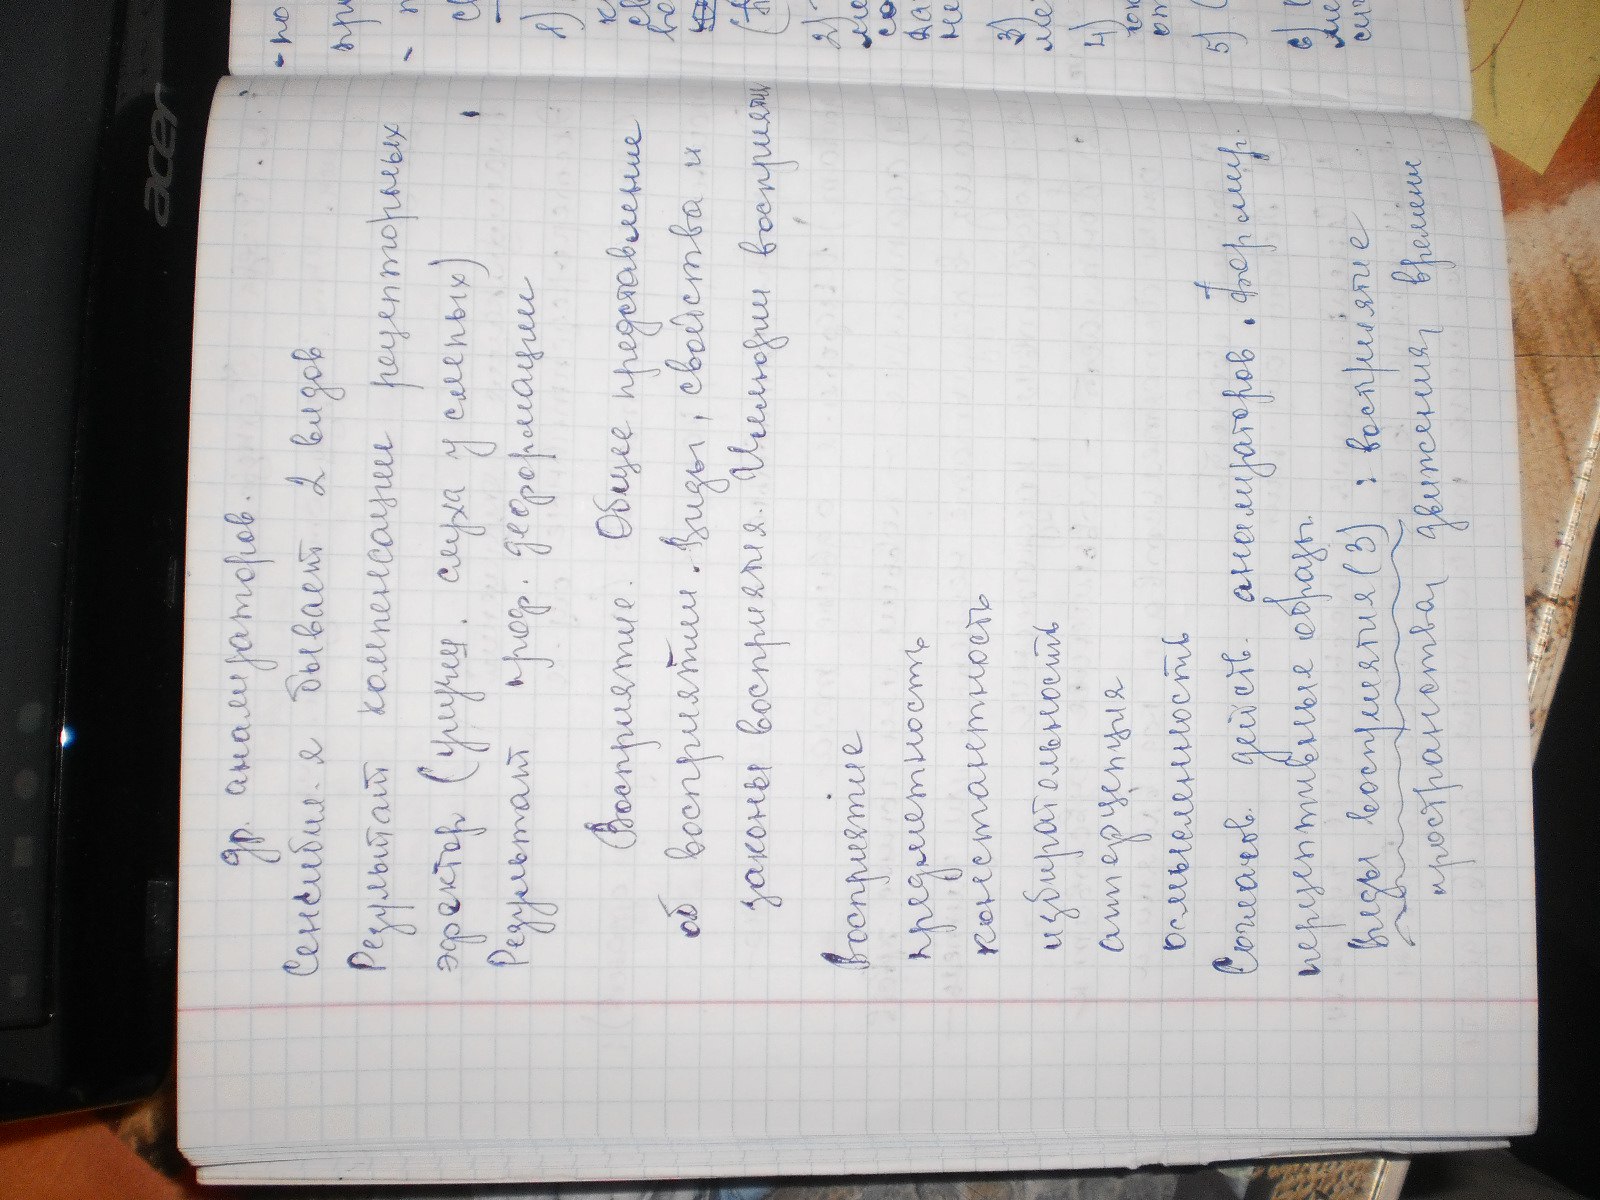 др. анализаторов.
Сенсибил-я бывает 2 видов
Результат компенсации рецепторных
эффектор (улучш. слуха у слепых)
Результат проф. деформации
Восприятие. Общее представление
об восприятии. Виды, свойства и
законы восприятия. Иллюзии восприяти
Восприятие
предметность
константность
избирательность
апперцепция
осмысленность
Соглаcов. действ. анализаторов. Формир.
перцептивные образы
Виды восприятия (3) : восприятие
пространства, движения, времени
acer
8)
2)
3)
4)
5)
6)